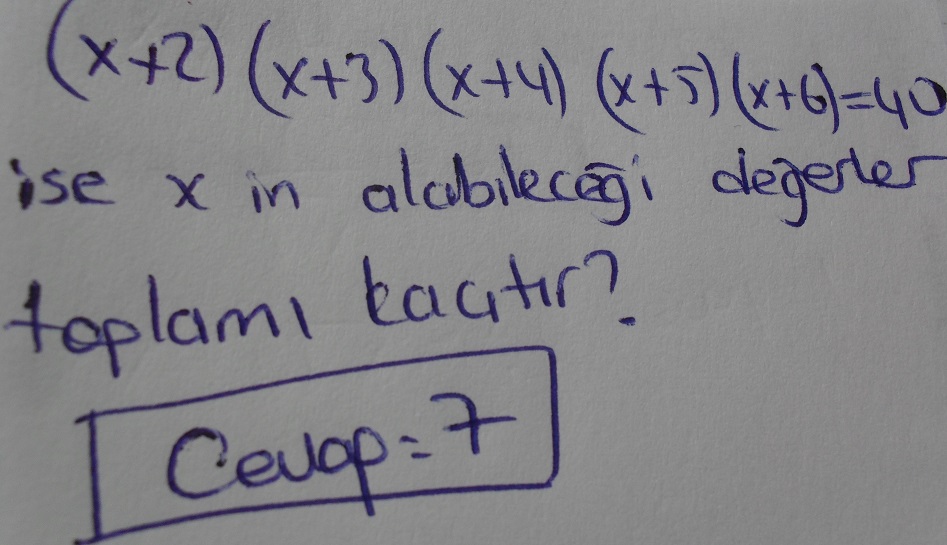 (x+2)(x+3)(x+4)(x+5)(x+6)=40
ise x in alabileceği değerler
toplamı kaçtır?
Cevap=7